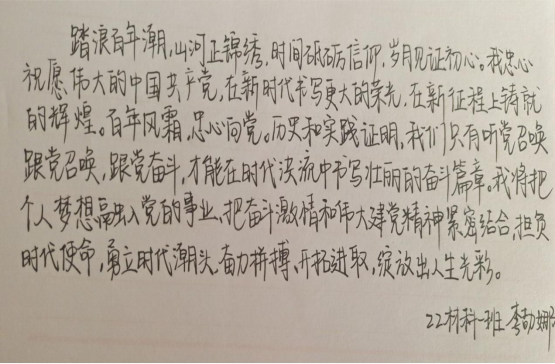 踏浪百年潮,山河正锦绣,时间砥砺信仰,岁月见证初心。我忠心
祝愿伟大的中国共产党,在新时代书写更大的荣光,在新征程上铸就
的辉煌。百年风霜,忠心向党。历史和实践证明,我们只有听党召唤
跟党召唤,跟党奋斗,才能在时代洪流中书写壮丽的奋斗篇章。我将把
个人梦想融入党的事业、把奋斗激情和伟大建党精神紧密结合,担负
时代使命,勇立时代潮头,奋力拼搏、开拓进取,绽放出人生光彩。
22材科一班 李